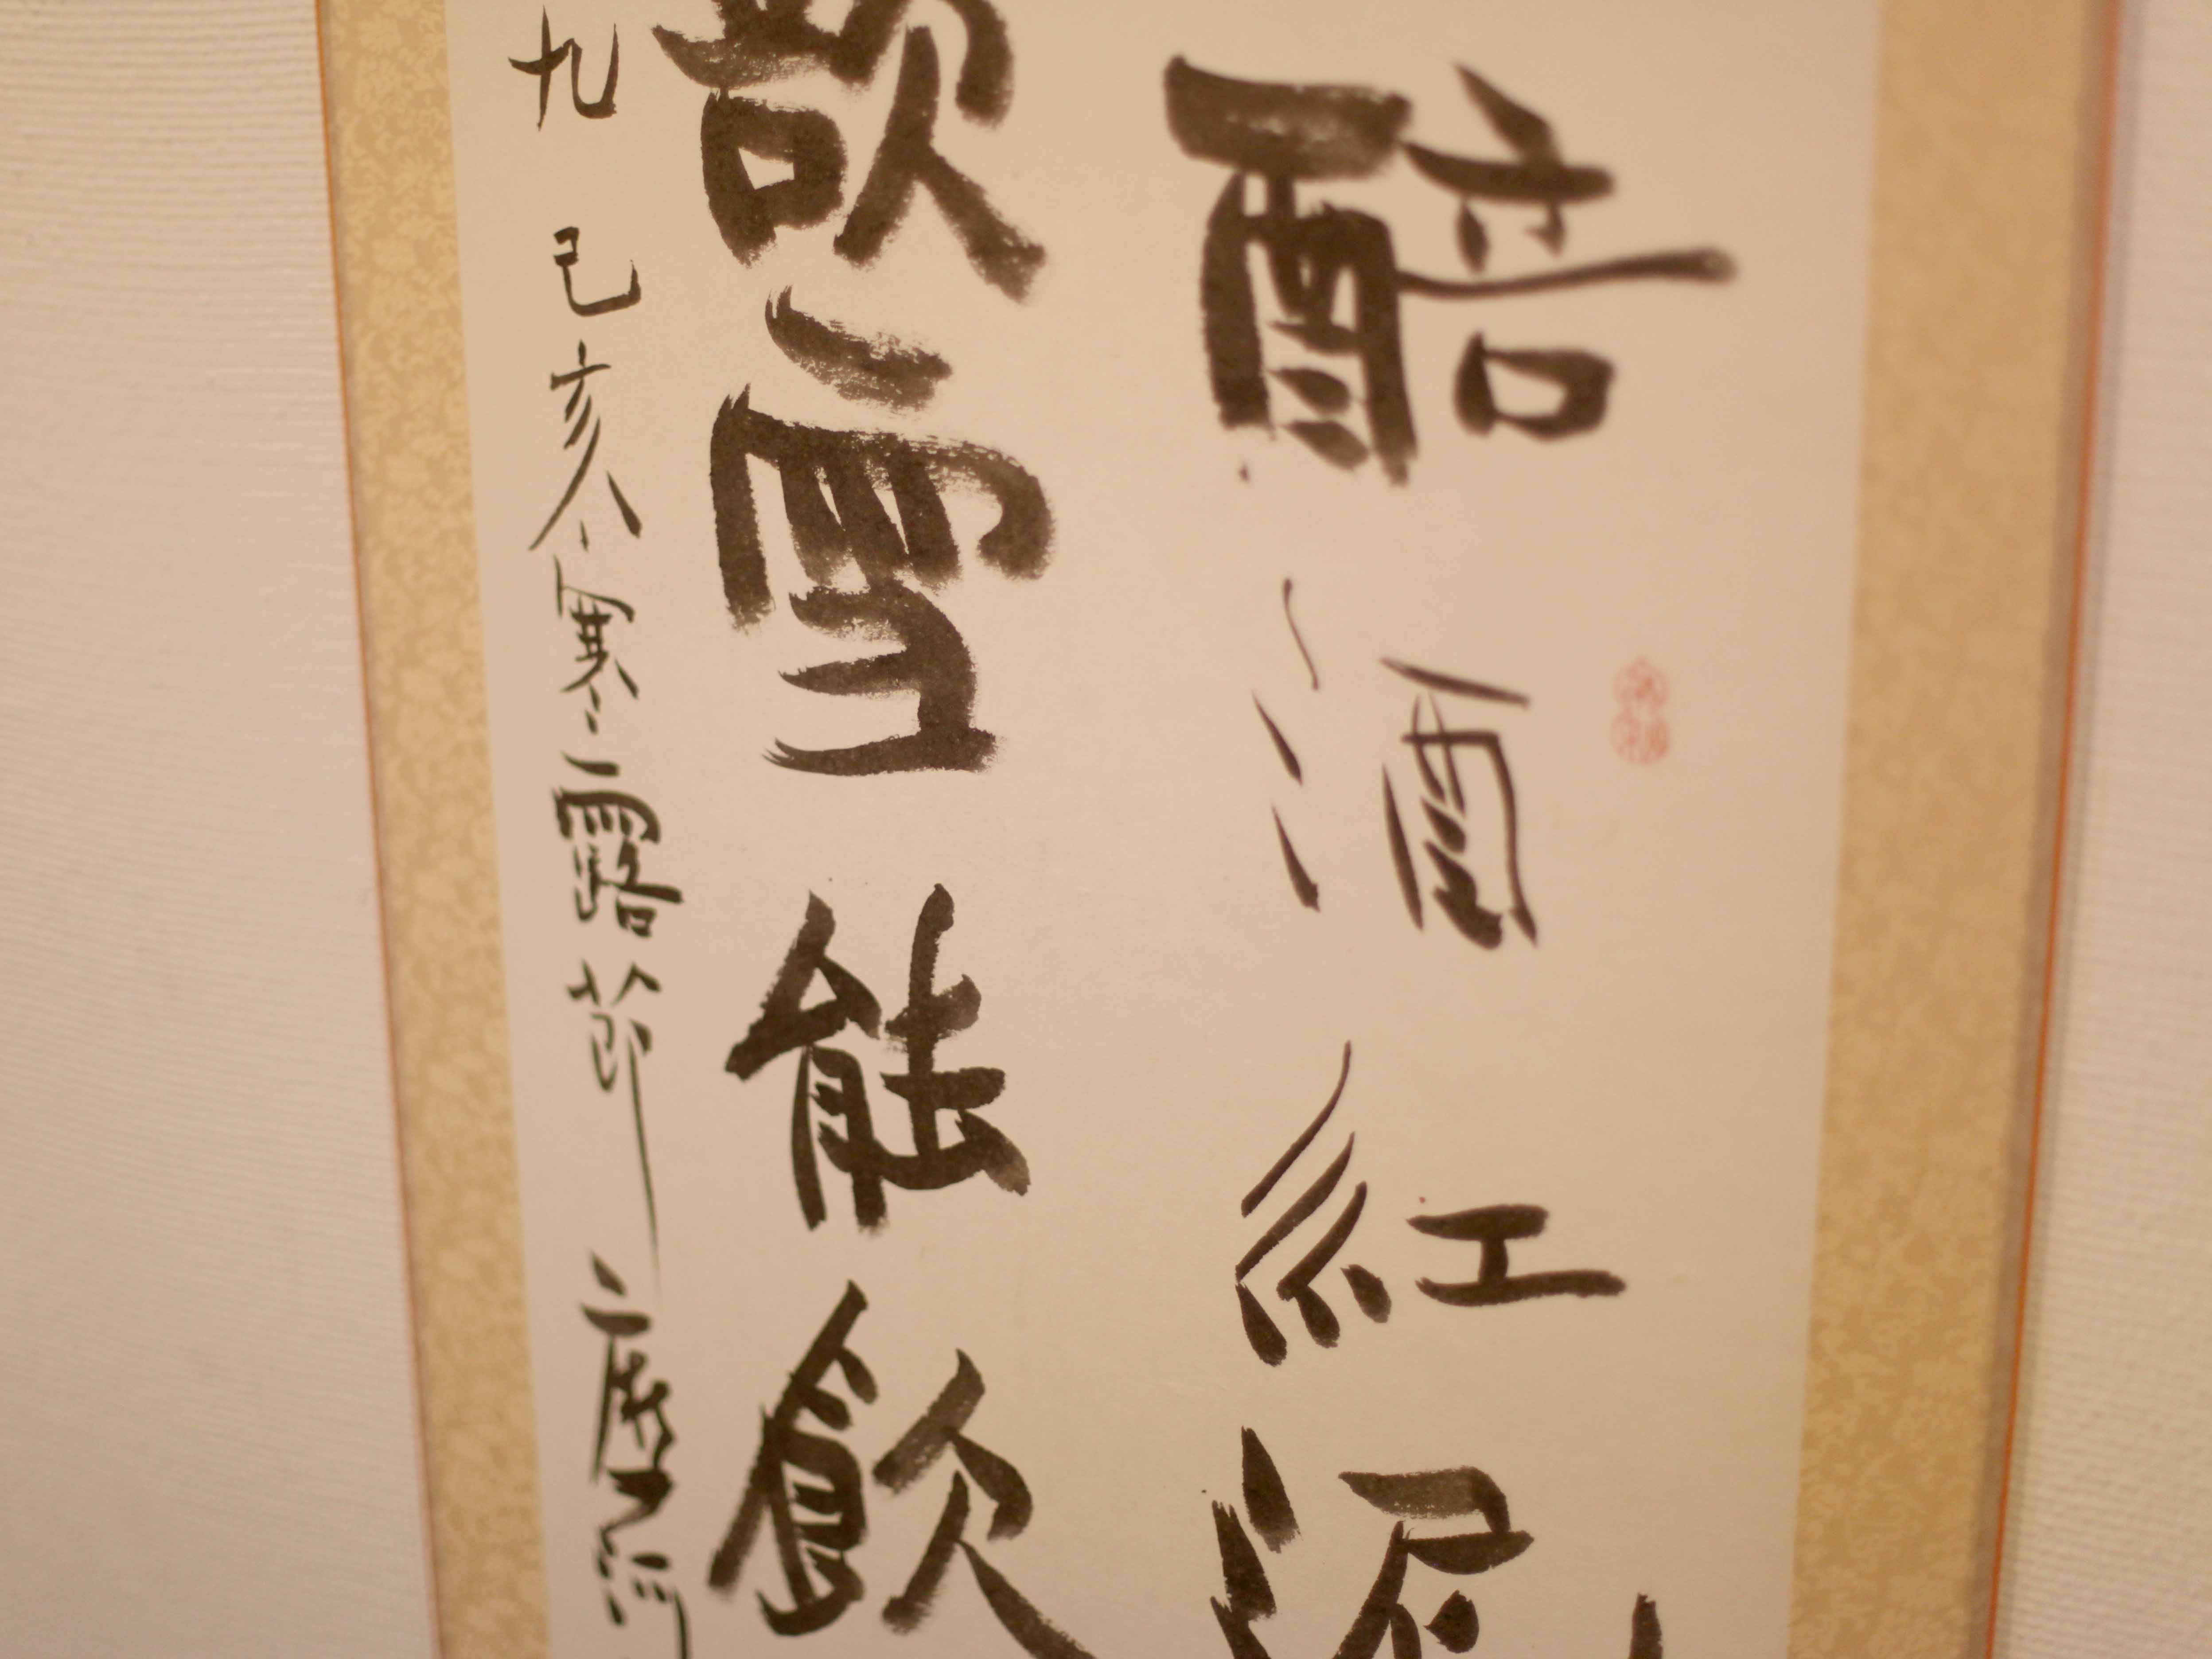 醅酒紅泥
欲雪能飲
九己亥寒露節